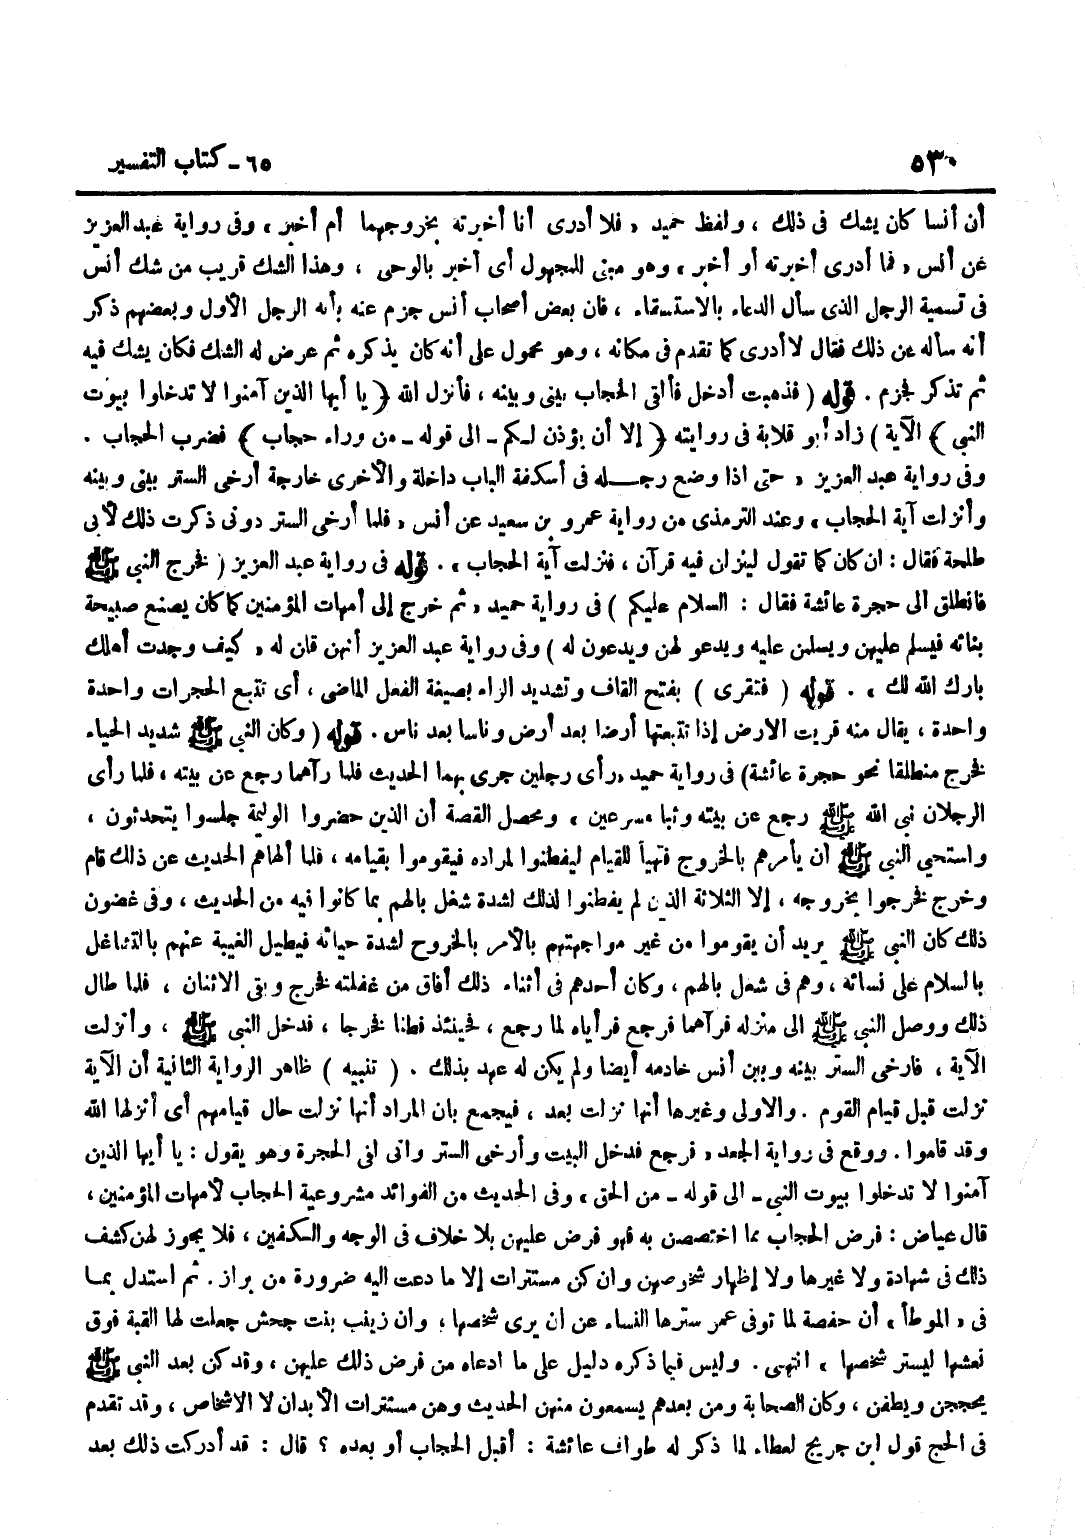 ٥٣٠
٦٥ - كتاب التفسير
أن أنسا كان يشك فى ذلك ، ولفظ حميد « فلا أدرى أنا أخبرته بخروجهما أم أخبر » وفى رواية عبد العزيز
عن أنس « فما أدرى أخبرته أو أخبر » وهو مبنى للمجهول أى أخبر بالوحى ، وهذا الشك قريب من شك أنس
فى تسمية الرجل الذى سأل الدعاء بالاستسقاء ، فان بعض أصحاب أنس جزم عنه بأنه الرجل الأول وبعضهم ذكر
أنه سأله عن ذلك فقال لا أدرى كما تقدم فى مكانه ، وهو محمول على أنه كان يذكره ثم عرض له الشك فكان يشك فيه
ثم تذكر فجزم . قوله ( فذهبت أدخل فألقى الحجاب بينى وبينه ، فأنزل الله ﴿ يا أيها الذين آمنوا لا تدخلوا بيوت
النبي ﴾ الآية ) زاد أبو قلابة فى روايته ﴿ إلا أن يؤذن لكم - الى قوله - من وراء حجاب ﴾ فضرب الحجاب .
وفى رواية عبد العزيز « حتى اذا وضع رجله فى أسكفة الباب داخلة والأخرى خارجة أرخى الستر بينى وبينه
وأنزلت آية الحجاب » وعند الترمذى من رواية عمرو بن سعيد عن أنس « فلما أرخى الستر دونى ذكرت ذلك لأبى
طلحة فقال : ان كان كما تقول لينزلن فيه قرآن ، فنزلت آية الحجاب » . قوله فى رواية عبد العزيز ( فخرج النبي ﷺ
فانطلق الى حجرة عائشة فقال : السلام عليكم ) فى رواية حميد « ثم خرج إلى أمهات المؤمنين كما كان يصنع صبيحة
بنائه فيسلم عليهن ويسلمن عليه ويدعو لهن ويدعون له ) وفى رواية عبد العزيز أنهن قلن له « كيف وجدت أهلك
بارك الله لك » . قوله ( فتقرى ) بفتح القاف وتشديد الراء بصيغة الفعل الماضى ، أى تتبع الحجرات واحدة
واحدة ، يقال منه قريت الارض إذا تتبعتها أرضا بعد أرض وناسا بعد ناس . قوله ( وكان النبي ﷺ شديد الحياء
فخرج منطلقا نحو حجرة عائشة) فى رواية حميد « رأى رجلين جرى بهما الحديث فلما رآهما رجع عن بيته ، فلما رأى
الرجلان نبى الله ﷺ رجع عن بيته وثبا مسرعين » ومحصل القصة أن الذين حضروا الوليمة جلسوا يتحدثون ،
واستحيى النبي ﷺ أن يأمرهم بالخروج فتهيأ للقيام ليفطنوا لمراده فيقوموا بقيامه ، فلما ألهاهم الحديث عن ذلك قام
وخرج فخرجوا بخروجه ، إلا الثلاثة الذين لم يفطنوا لذلك لشدة شغل بالهم بما كانوا فيه من الحديث ، وفى غضون
ذلك كان النبي ﷺ يريد أن يقوموا من غير مواجهتهم بالأمر بالخروج لشدة حيائه فيطيل الغيبة عنهم بالتشاغل
بالسلام على نسائه ، وهم فى شغل بالهم ، وكان أحدهم فى أثناء ذلك أفاق من غفلته فخرج وبقى الاثنان ، فلما طال
ذلك ووصل النبي ﷺ الى منزله فرآهما فرجع فرأياه لما رجع ، فحينئذ فطنا فخرجا ، فدخل النبي ﷺ ، وأنزلت
الآية ، فارخى الستر بينه وبين أنس خادمه أيضا ولم يكن له عهد بذلك . ( تنبيه ) ظاهر الرواية الثانية أن الآية
نزلت قبل قيام القوم . والاولى وغيرها أنها نزلت بعد ، فيجمع بان المراد أنها نزلت حال قيامهم أى أنزلها الله
وقد قاموا . ووقع فى رواية الجعد « فرجع فدخل البيت وأرخى الستر وانى لفى الحجرة وهو يقول : يا أيها الذين
آمنوا لا تدخلوا بيوت النبي - الى قوله - من الحق » وفى الحديث من الفوائد مشروعية الحجاب لأمهات المؤمنين ،
قال عياض : فرض الحجاب مما اختصصن به فهو فرض عليهن بلا خلاف فى الوجه والكفين ، فلا يجوز لهن كشف
ذلك فى شهادة ولا غيرها ولا إظهار شخوصهن وان كن مستترات إلا ما دعت اليه ضرورة من براز . ثم استدل بما
فى « الموطأ » أن حفصة لما توفى عمر سترها النساء عن ان يرى شخصها ؛ وان زينب بنت جحش جعلت لها القبة فوق
نعشها ليستر شخصها » انتهى . وليس فيما ذكره دليل على ما ادعاه من فرض ذلك عليهن ، وقد كن بعد النبي ﷺ
يحججن ويطفن ، وكان الصحابة ومن بعدهم يسمعون منهن الحديث وهن مستترات الأبدان لا الاشخاص ، وقد تقدم
فى الحج قول ابن جريج لعطاء لما ذكر له طواف عائشة : أقبل الحجاب أو بعده ؟ قال : قد أدركت ذلك بعد